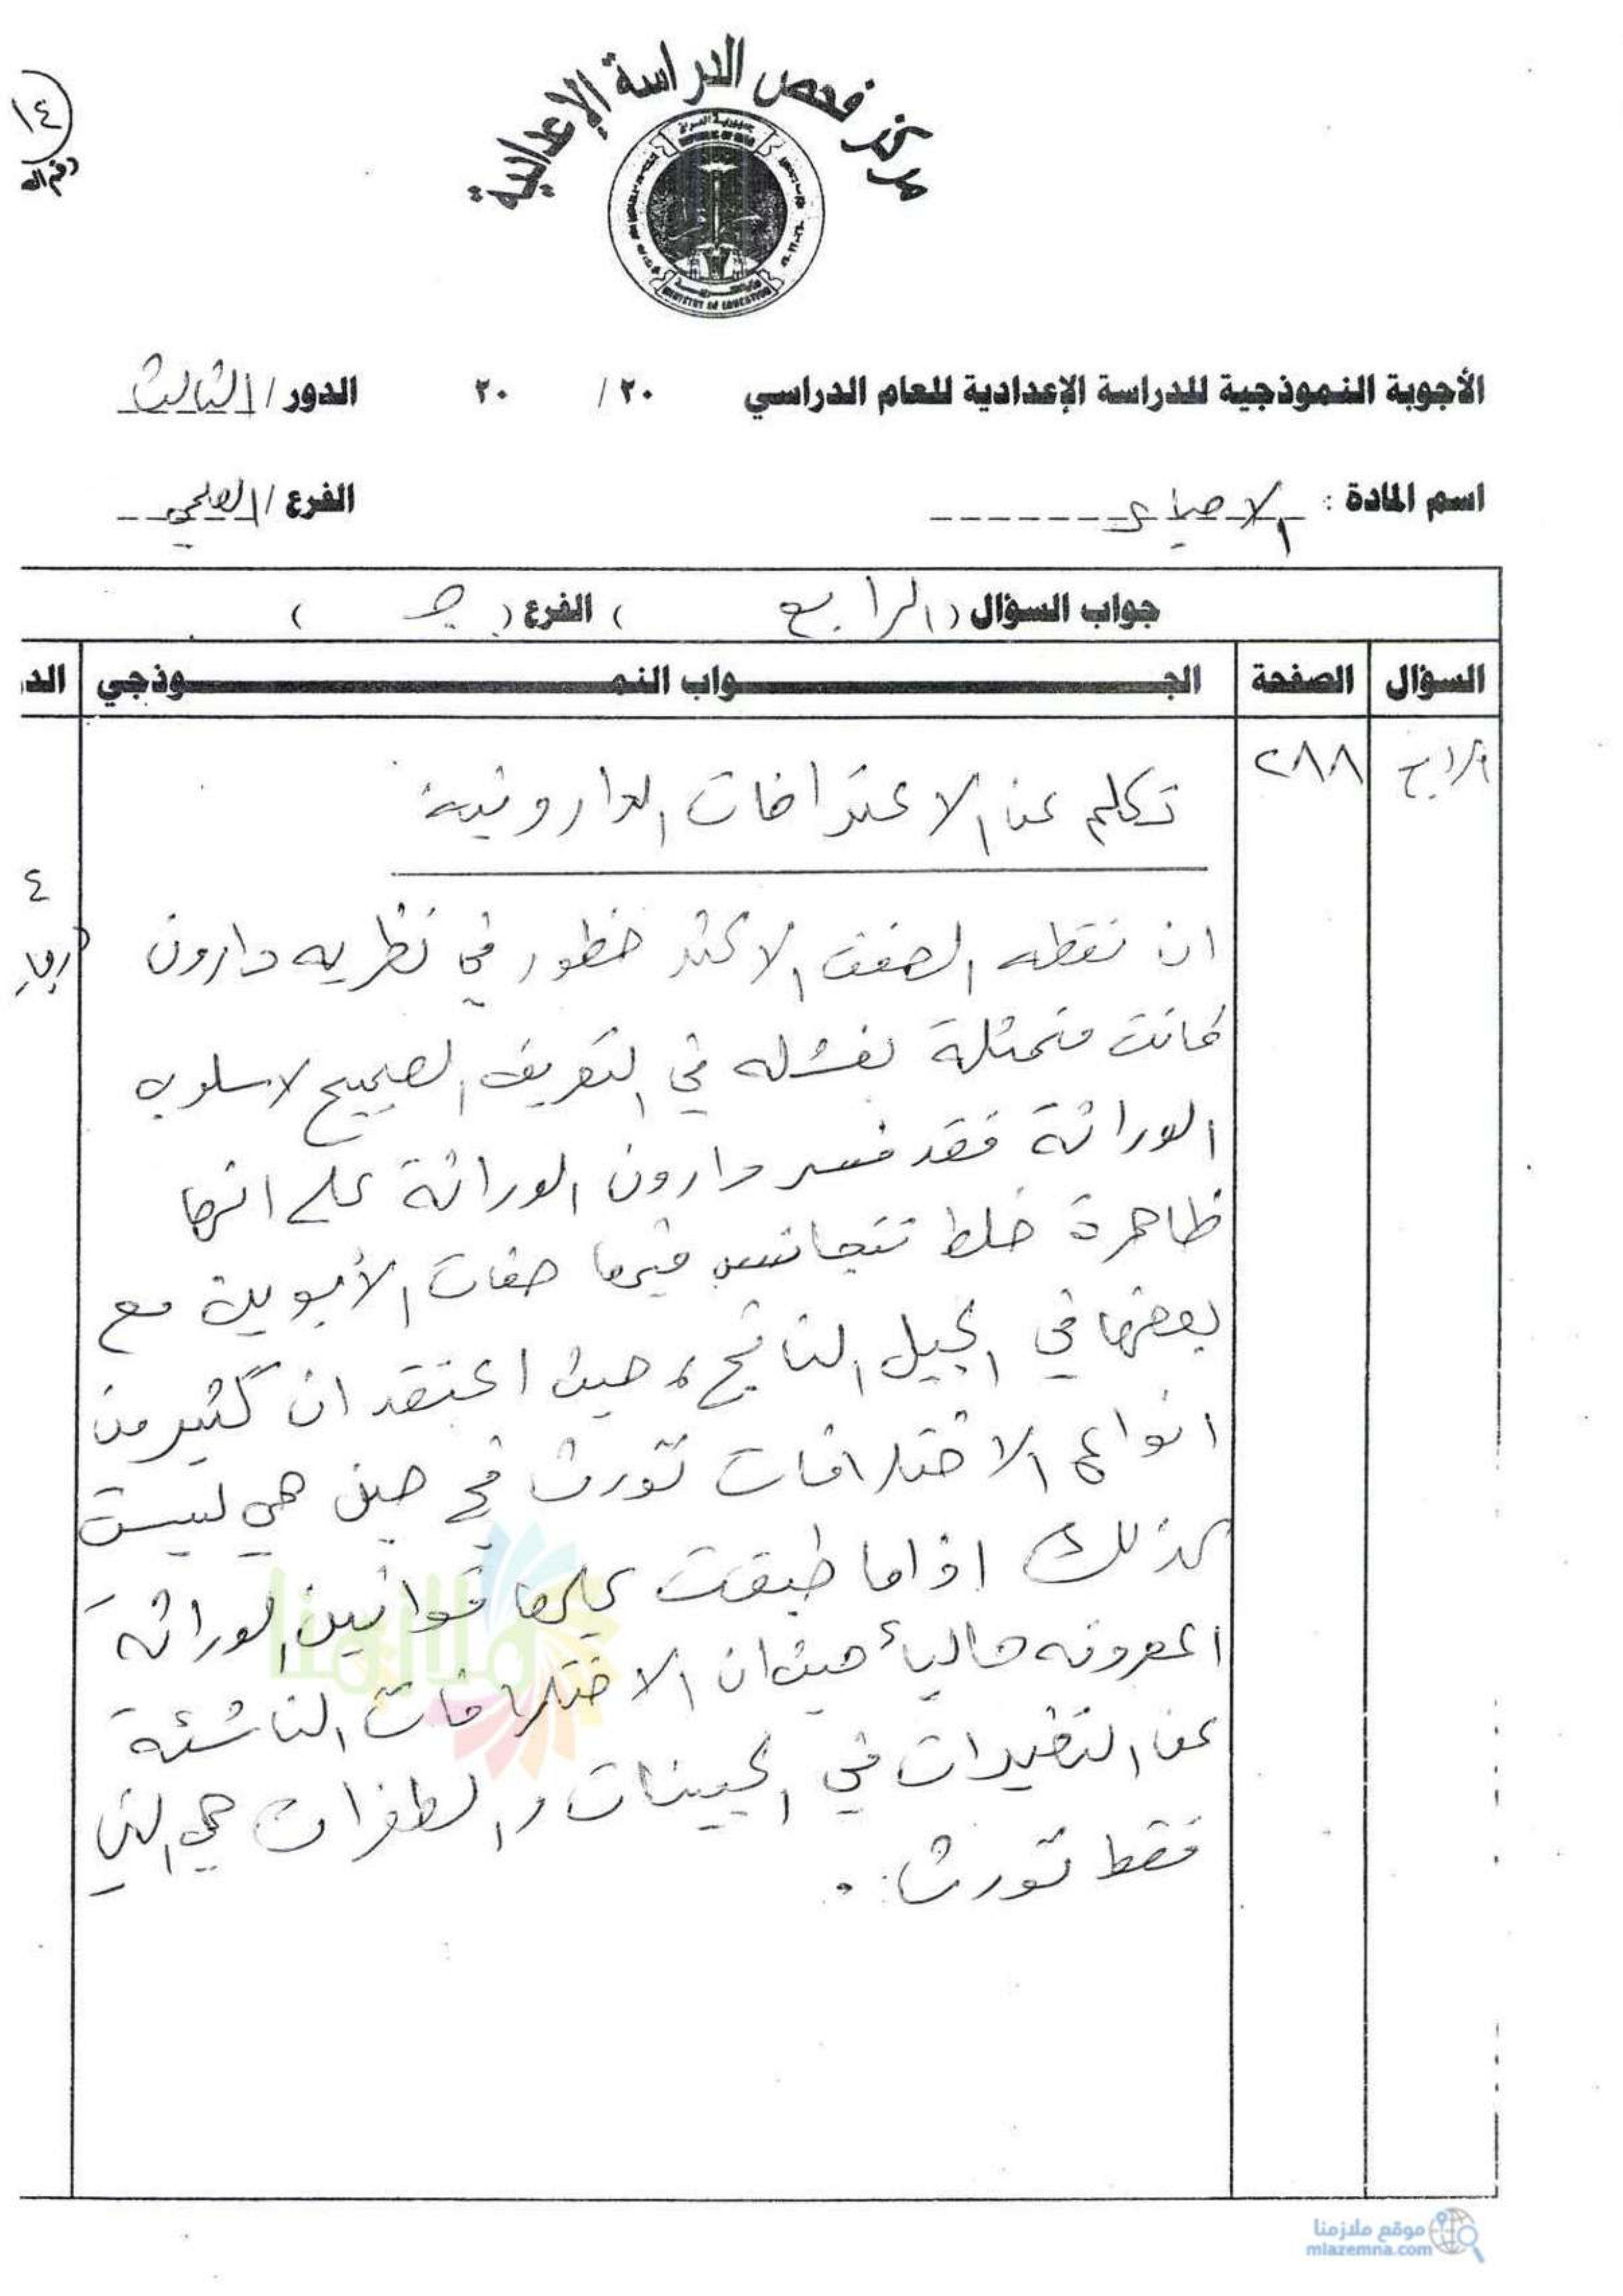 ١٤
مركز فحص الدراسة الإعدادية
جمهورية العراق
REPUBLIC OF IRAQ
MINISTRY OF EDUCATION
الأجوبة النموذجية للدراسة الإعدادية للعام الدراسي ٢٠ / ٢٠ الدور / الثالث
اسم المادة : الاحياء الفرع / العلمي
جواب السؤال ( الرابع ) الفرع ( جـ )
السؤال الصفحة الجـــواب النمـــوذجي الد
الرابع ٢٨٨
تكلم عن الاعتراضات الدارونية
٤
ان نقطه الضعف الاكثر خطور في نظريه دارون
كانت متمثلة بفشله في التعريف الصحيح لاسلوب
الوراثة فقد فسر دارون الوراثة على انها
ظاهرة خلط تتجانس فيها صفات الأبوين مع
بعضها في الجيل الناتج، حيث اعتقد ان كثير من
انواع الاختلافات تورث في حين هي ليست
كذلك اذا ما طبقت عليها قوانين الوراثة
المعروفه حالياً حيث ان الاختلافات الناشئة
عن التغيرات في الجينات والطفرات هي التي
فقط تورث .
ملازمنا
موقع ملازمنا
mlazemna.com